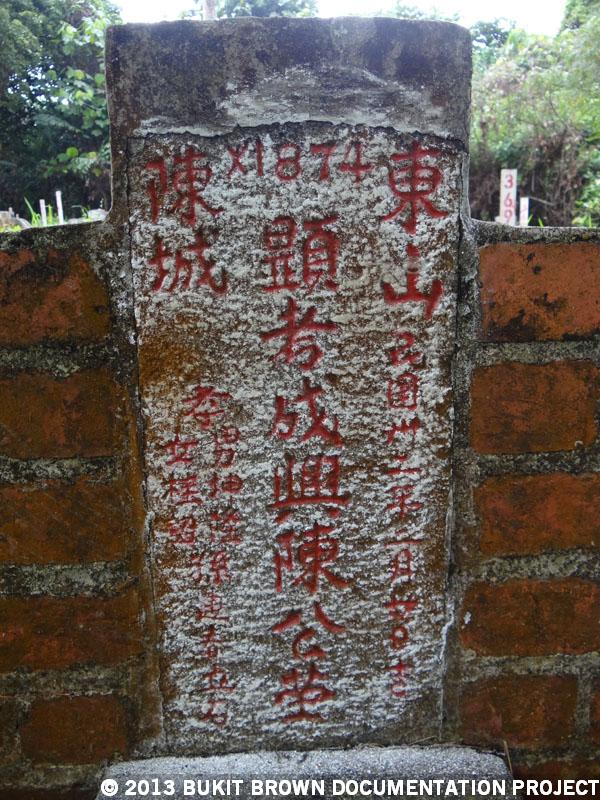 X1874
東山
民國卅二年 月廿 吉
顯考成興陳公茔
陳城
孝男 孫連春立石
女
369
© 2013 BUKIT BROWN DOCUMENTATION PROJECT